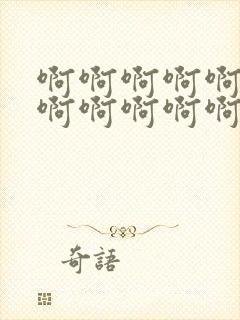 啊啊啊啊啊
啊啊啊啊啊
奇語